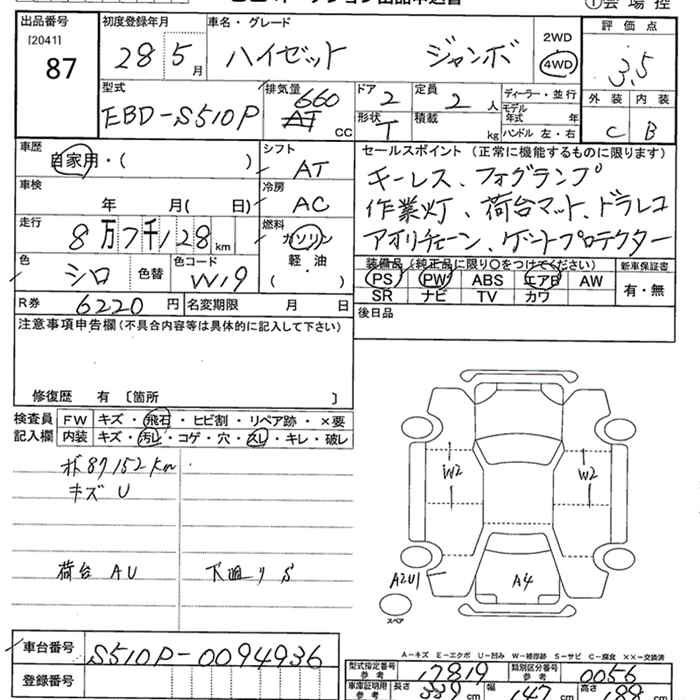 出品番号 初度登録年月 車名・グレード 2WD 4WD 評価点
[2041] 87 28 5月 ハイゼット ジャンボ 3.5
型式 排気量 ドア 定員 ディーラー・並行 外装 内装
EBD-S510P 660 AT CC 2 2人 モデル年式 年
形状 T 積載 kg ハンドル 左・右 C B
車歴 自家用・( ) シフト AT セールスポイント (正常に機能するものに限ります)
車検 年 月( 日) 冷房 AC キーレス、フォグランプ
作業灯、荷台マット、ドラレコ
走行 8万7千128km 燃料 ガソリン 軽・油 ( ) アオリチェーン、ゲートプロテクター
色 シロ 色替 色コード W19 装備品 (純正品に限り○をつけてください) 新車保証書
PS PW ABS エアB AW 有・無
R券 6220円 名変期限 月 日 SR ナビ TV カワ
注意事項申告欄(不具合内容等は具体的に記入して下さい) 後日品
修復歴 有 〔箇所 〕
検査員 FW キズ・飛石・ヒビ割・リペア跡・×要
記入欄 内装 キズ・汚レ・コゲ・穴・スレ・キレ・破レ
87152km
キズ U
W2 W2
荷台 AU 下廻り S
A2U1 A4
スペア
A-キズ E-エクボ U-凹み W-補修跡 S-サビ C-腐食 ××-交換済
車台番号 S510P-0094936
型式指定番号 参考 17819 類別区分番号 参考 0056
登録番号 車庫証明用 参考 長さ 339cm 幅 147 高さ 188cm